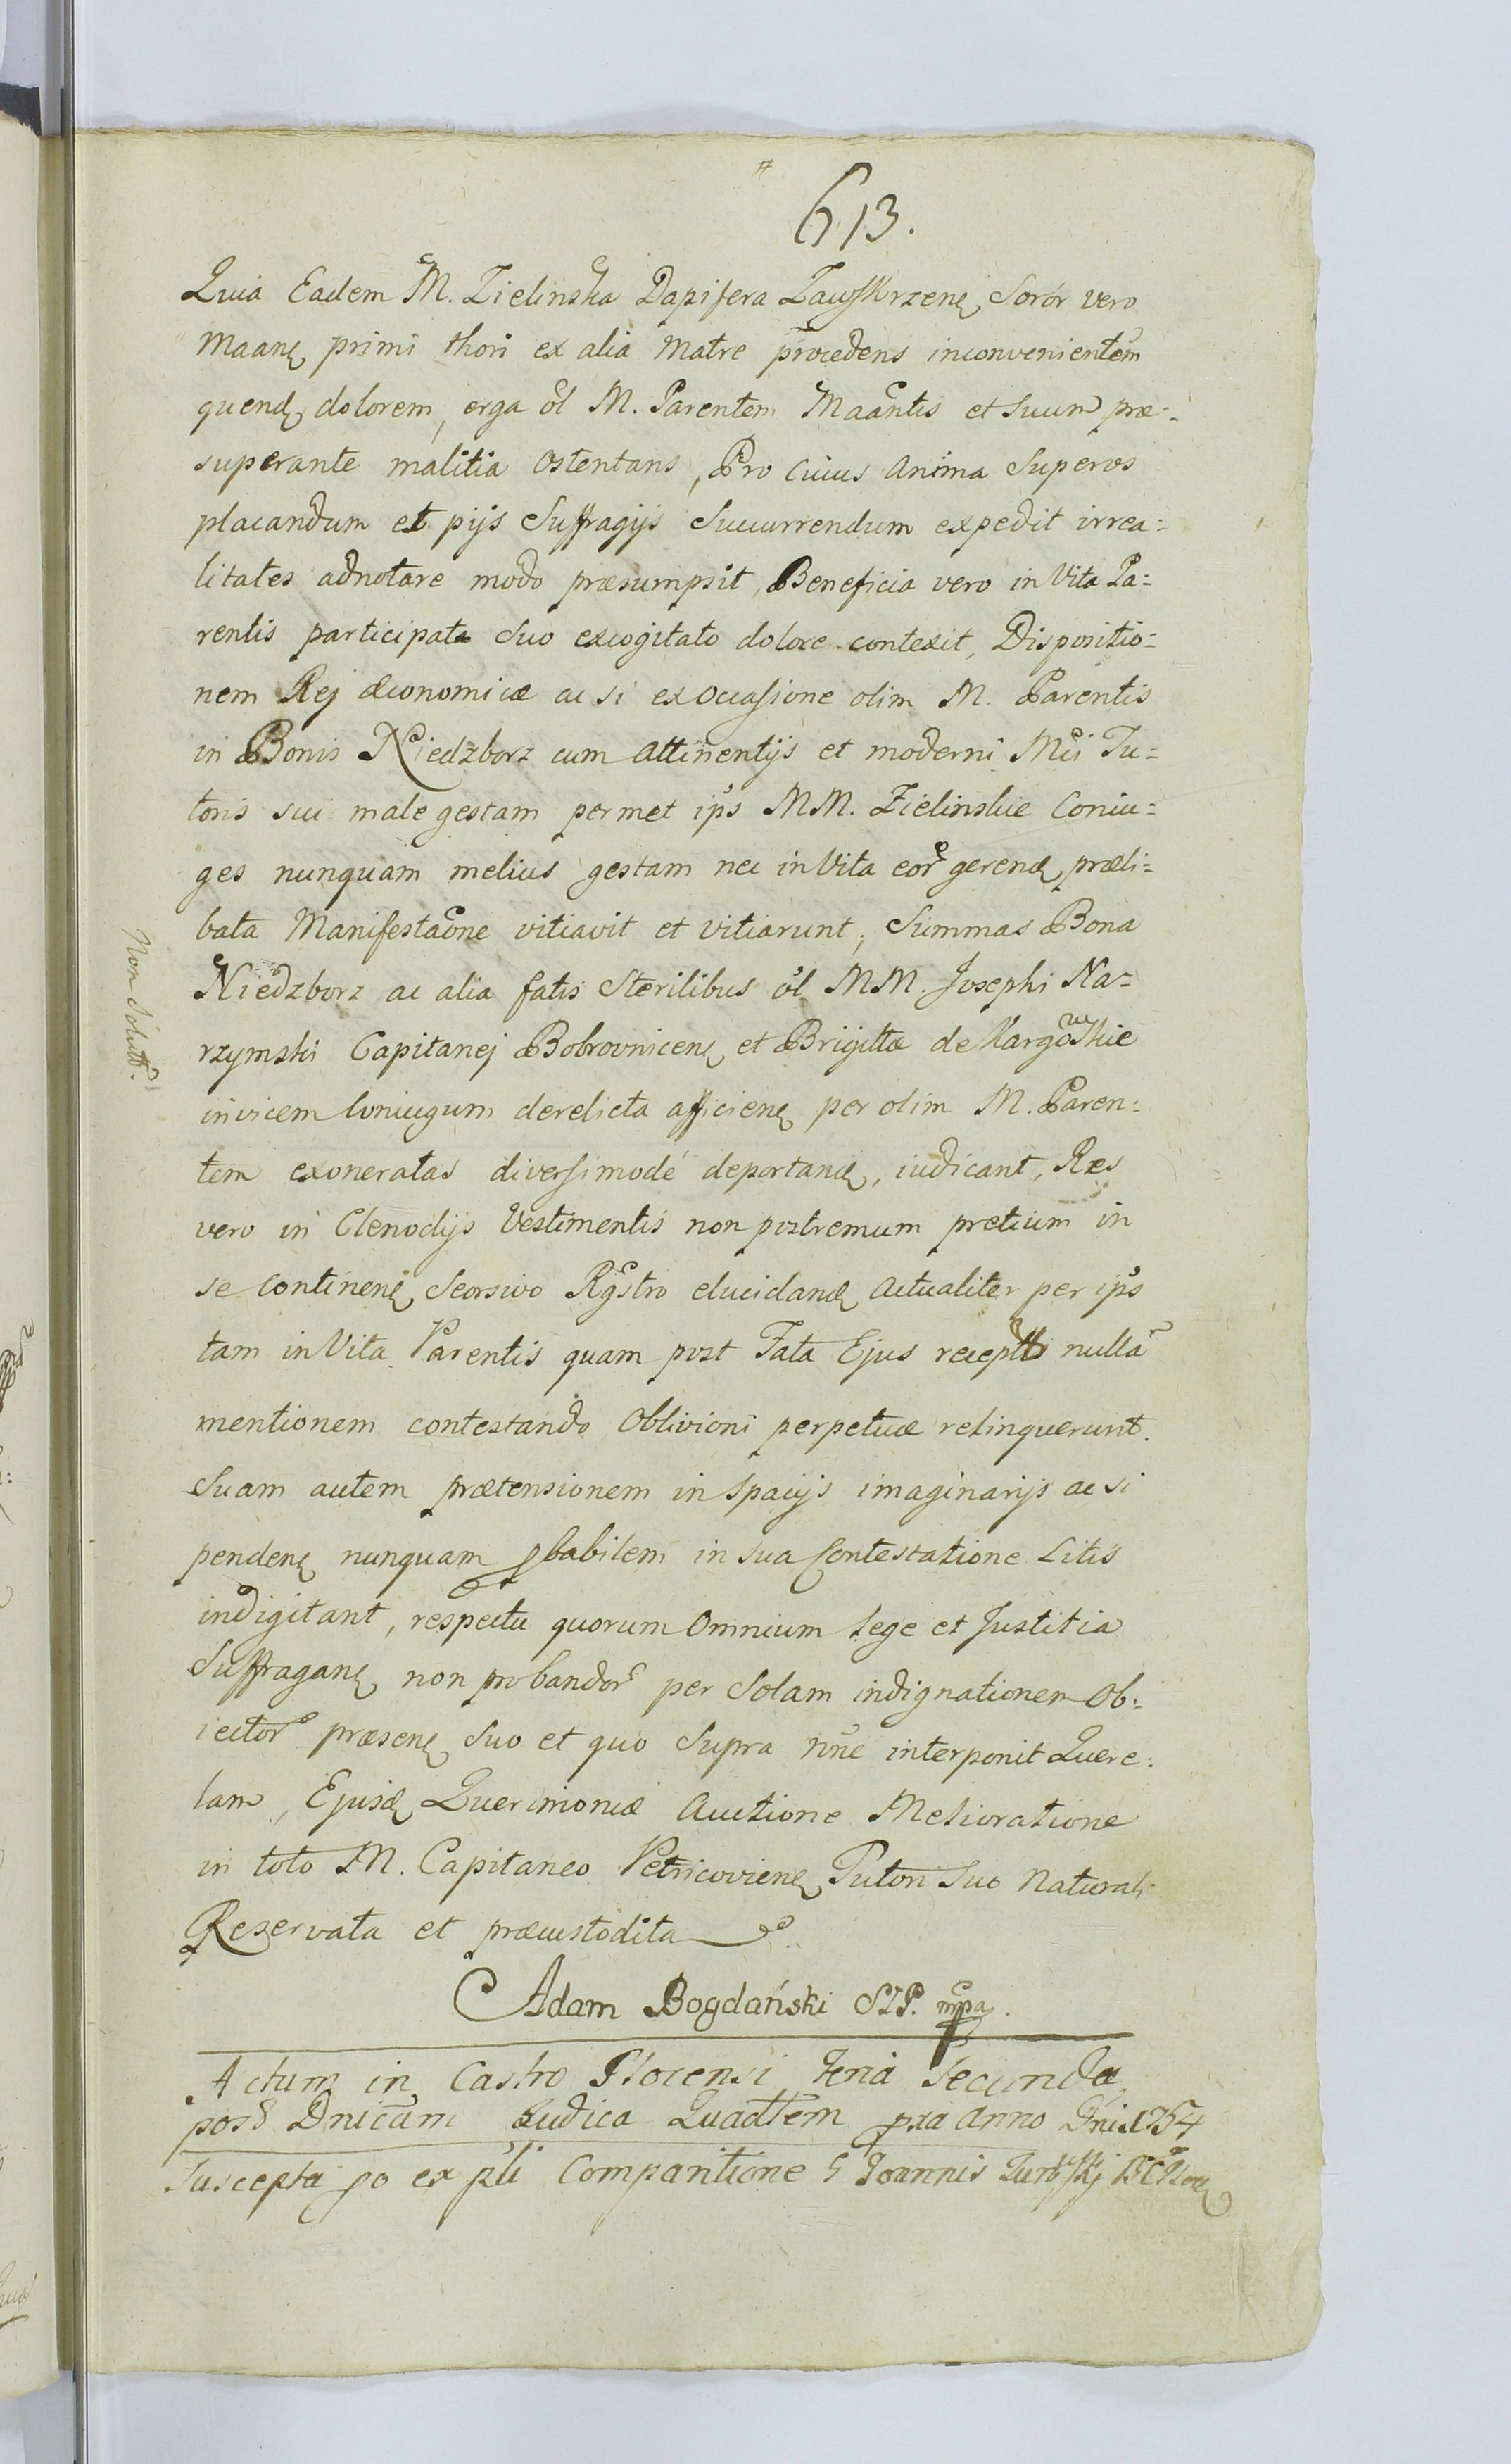 613.
Quia Eadem M. Zielinska Dapifera Zawskrzenę Soror vero
Maanę primi thori ex alia Matre procedens inconvenientem
quendę dolorem, erga ol M. Parentem Maantis et Suum præ:
superante malitia Ostentans, Pro Cuius Anima Superos
placandum et pijs Suffragijs Succurrendum expedit irrea:
litates adnotare modo præsumpsit, Beneficia vero in Vita Pa:
rentis participata Suo excogitato dolore contexit, Dispositio:
nem Rej œconomicæ ac si ex Occasione olim M. Parentis
in Bonis Niedzborz cum Attinentijs et moderni Mci Tu:
toris sui male gestam permet ips MM. Zielinskie Coniu:
ges nunquam melius gestam nec in Vita eor gerendę præli:
bata Manifestaone vitiavit et vitiarunt; Summas Bona
Niedzborz ac alia fatis Sterilibus ol MM. Josephi Na:
rzymski Capitanej Bobrovnicenę et Brigittæ de Kargowskie
invicem Coniugum derelicta afficienę per olim M. Paren:
tem exoneratas diversimodé deportandę, iudicant, Res
vero in Clenodijs Vestimentis non postremum pretium in
se continenę Seorsivo Rgstro elucidandę Actualiter per ips
tam in Vita Parentis quam post Fata Ejus recept nulla
mentionem contestando Oblivioni perpetuæ relinquerunt.
Suam autem prætensionem in spacijs imaginarijs ac si
pendenę nunquam pbabilem in sua Contestatione Litis
indigitant, respectu quorum Omnium Lege et Justitia
Suffraganę non probandor per Solam indignationem Ob:
iector præsenę Suo et quo Supra nne interponit Quere:
lam, Ejusdę Querimoniæ Auctione Melioratione
in toto M. Capitaneo Petricovienę Tutori Suo Naturali
Reservata et præcustodita
Adam Bogdański SZP. mpa.
Actum in Castro Plocensi Feria Secunda
post Dnicam Judica Quadtem pxa Anno Dni 1754
Suscepta po ex pli Comparitione G Joannis